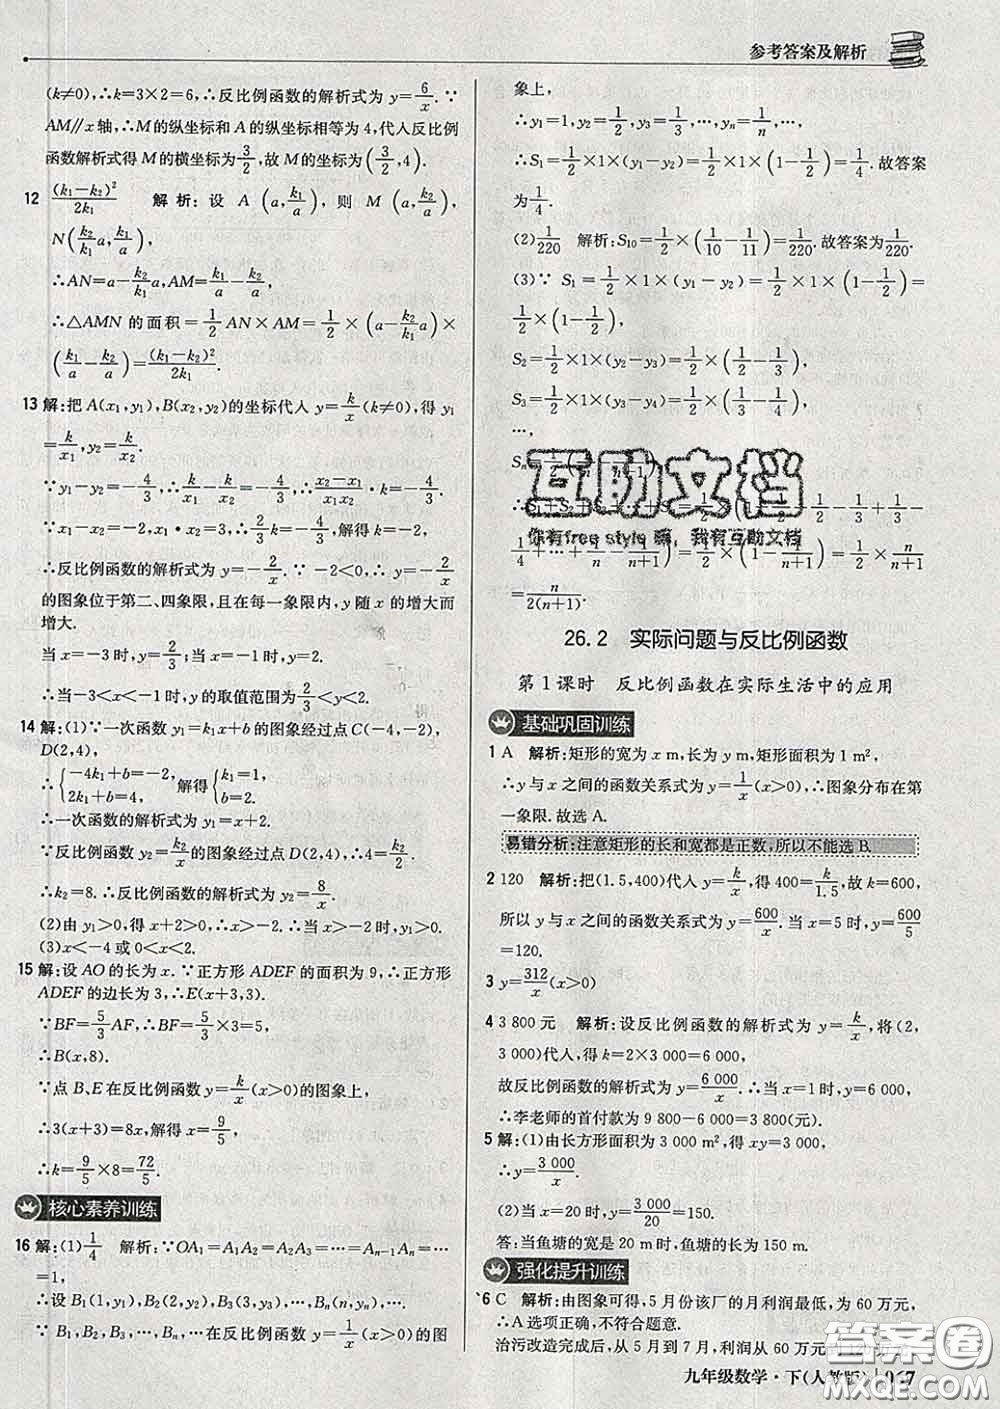 参考答案及解析
(k≠0),∴k=3×2=6,∴反比例函数的解析式为 y=6/x. ∵
AM∥x 轴,∴M的纵坐标和A的纵坐标相等为4,代入反比例
函数解析式得 M 的横坐标为3/2,故 M(3/2,4).
12 (k₁-k₂)²/2k₁ 解析:设 A(a,k₁/a),则 M(a,k₂/a),
N(k₂/k₁a,k₁/a),
∴AN=a-k₂/k₁a,AM=k₁/a-k₂/a,
∴△AMN 的面积=1/2AN×AM=1/2×(a-k₂/k₁a)×
(k₁/a-k₂/a)=(k₁-k₂)²/2k₁.
13 解:把 A(x₁,y₁),B(x₂,y₂)的坐标代入 y=k/x(k≠0),得 y₁
=k/x₁,y₂=k/x₂.
∵y₁-y₂=-4/3,∴k/x₁-k/x₂=-4/3,∴(x₂-x₁)/x₁x₂·k=-4/3.
∵x₁-x₂=-2,x₁·x₂=3,∴2/3k=-4/3,解得 k=-2,
∴反比例函数的解析式为 y=-2/x. ∵-2<0,∴y=-2/x
的图象位于第二、四象限,且在每一象限内,y 随 x 的增大而
增大.
当 x=-3 时,y=2/3;当 x=-1 时,y=2.
∴当-3<x<-1 时,y 的取值范围为2/3<y<2.
14 解:(1)∵一次函数 y₁=k₁x+b 的图象经过点C(-4,-2),
D(2,4),
∴{-4k₁+b=-2, 2k₁+b=4, 解得{k₁=1, b=2.
∴一次函数的解析式为 y₁=x+2.
∵反比例函数 y₂=k₂/x的图象经过点 D(2,4),∴4=k₂/2.
∴k₂=8. ∴反比例函数的解析式为 y₂=8/x.
(2)由 y₁>0,得 x+2>0,∴x>-2. ∴当 x>-2 时,y₁>0.
(3)x<-4 或 0<x<2.
15 解:设 AO 的长为 x. ∵正方形 ADEF 的面积为 9,∴正方形
ADEF 的边长为 3,∴E(x+3,3).
∵BF=5/3AF,∴BF=5/3×3=5,
∴B(x,8).
∵点 B、E 在反比例函数 y=k/x(x>0)的图象上,
∴3(x+3)=8x,解得 x=9/5,
∴k=9/5×8=72/5.
核心素养训练
16 解:(1)1/4 解析:∵OA₁=A₁A₂=A₂A₃=…=Aₙ₋₁Aₙ=…
=1,
∴设 B₁(1,y₁),B₂(2,y₂),B₃(3,y₃),…,Bₙ(n,yₙ),….
∵ B₁,B₂,B₃,…,Bₙ,…在反比例函数 y=1/x(x>0)的图
象上,
∴y₁=1,y₂=1/2,y₃=1/3,…,yₙ=1/n,…,
∴S₁=1/2×1×(y₁-y₂)=1/2×1×(1-1/2)=1/4.故答案
为1/4.
(2)1/220 解析:S₁₀=1/2×(1/10-1/11)=1/220.故答案为1/220.
(3)∵ S₁=1/2×1×(y₁-y₂)=1/2×1×(1-1/2)=
1/2×(1-1/2),
S₂=1/2×1×(y₂-y₃)=1/2×(1/2-1/3),
S₃=1/2×1×(y₃-y₄)=1/2×(1/3-1/4),
…,
Sₙ=1/2(1/n-1/(n+1)),
互助文档
∴S₁+S₂+S₃+…+Sₙ=1/2×(1-1/2+1/2-1/3+1/3-
你有free style 嘛,我有互助文档
1/4+…+1/n-1/(n+1))=1/2×(1-1/(n+1))=1/2×n/(n+1)=
n/2(n+1).
26.2 实际问题与反比例函数
第1课时 反比例函数在实际生活中的应用
基础巩固训练
1 A 解析:矩形的宽为 x m,长为 y m,矩形面积为 1 m²,
∴y 与 x 之间的函数关系式为 y=1/x(x>0),∴图象分布在第
一象限.故选 A.
易错分析:注意矩形的长和宽都是正数,所以不能选 B.
2 120 解析:把(1.5,400)代入 y=k/x,得 400=k/1.5,故 k=600,
所以 y 与 x 之间的函数关系式为 y=600/x. 当 x=5 时,y=600/5
=120.
3 y=312/x(x>0)
4 3 800 元 解析:设反比例函数的解析式为 y=k/x,将(2,
3 000)代入,得 k=2×3 000=6 000,
故反比例函数的解析式为 y=6 000/x. ∴当 x=1 时,y=6 000,
∴李老师的首付款为 9 800-6 000=3 800(元).
5 解:(1)由长方形面积为 3 000 m²,得 xy=3 000,
∴y=3 000/x.
(2)当 x=20 时,y=3 000/20=150.
答:当鱼塘的宽是 20 m 时,鱼塘的长为 150 m.
强化提升训练
6 C 解析:由图象可得,5 月份该厂的月利润最低,为 60 万元,
∴A 选项正确,不符合题意.
治污改造完成后,从 5 月到 7 月,利润从 60 万元
答案圈
MXQE.COM
九年级数学·下(人教版) 067